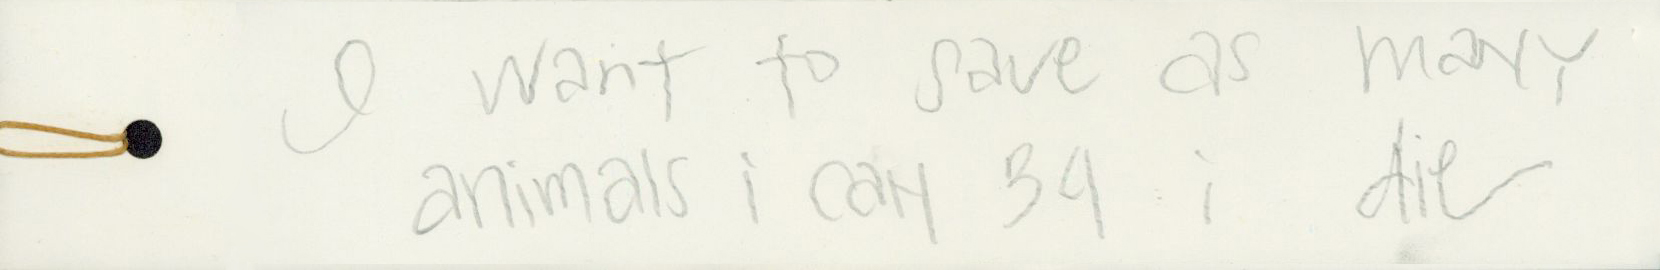 I want to save as many
animals i can B4 i die